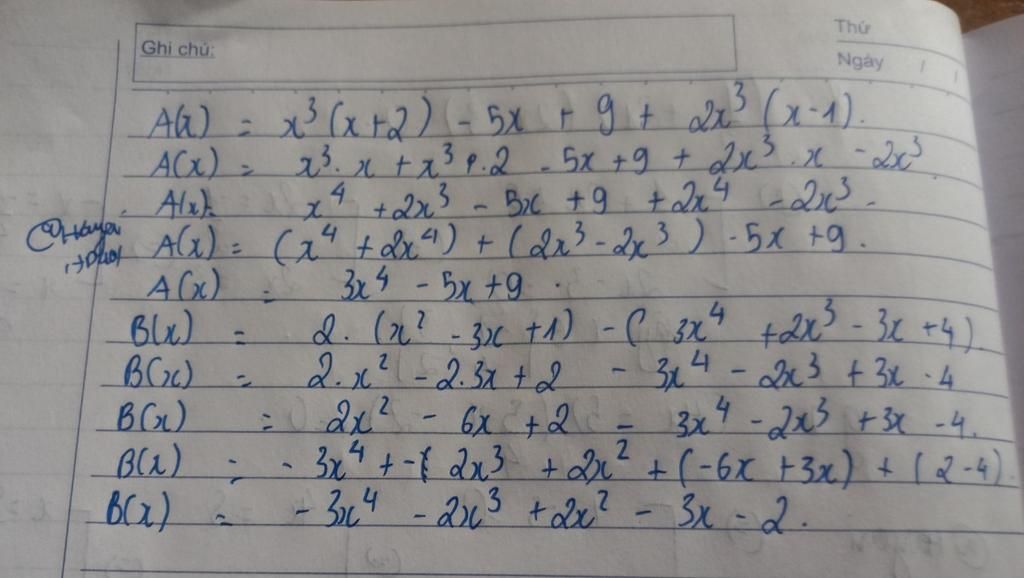 Ghi chú:
Thứ
Ngày / /
A(x) = x³(x+2) - 5x + 9 + 2x³(x-1).
A(x) = x³.x + x³.2 - 5x + 9 + 2x³.x - 2x³
A(x) = x⁴ + 2x³ - 5x + 9 + 2x⁴ - 2x³ -
A(x) = (x⁴ + 2x⁴) + (2x³ - 2x³) - 5x + 9.
A(x) = 3x⁴ - 5x + 9.
B(x) = 2.(x² - 3x + 1) - (3x⁴ + 2x³ - 3x + 4)
B(x) = 2.x² - 2.3x + 2 - 3x⁴ - 2x³ + 3x - 4
B(x) = 2x² - 6x + 2 - 3x⁴ - 2x³ + 3x - 4.
B(x) = - 3x⁴ + -( 2x³ + 2x² + (-6x + 3x) + (2-4).
B(x) = - 3x⁴ - 2x³ + 2x² - 3x - 2.